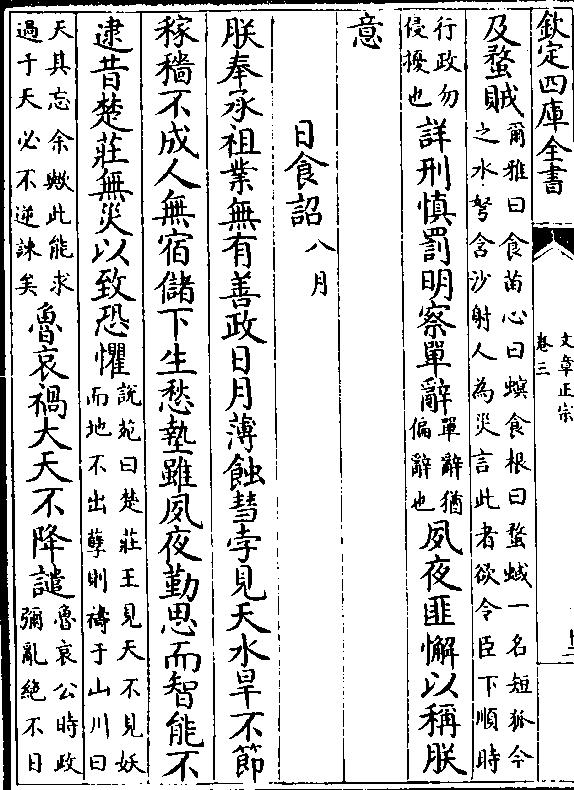 欽定四庫全書
文章正宗
卷三
及蝥賊爾雅曰食苗心曰螟食根曰蝥蜮一名短狐今
之水弩含沙射人為災言此者欲令臣下順時
行政勿
侵擾也詳刑慎罰明察單辭單辭猶
偏辭也夙夜匪懈以稱朕
意
日食詔八月
朕奉承祖業無有善政日月薄蝕彗孛見天水旱不節
稼穡不成人無宿儲下生愁墊雖夙夜勤思而智能不
逮昔楚莊無災以致恐懼說苑曰楚莊王見天不見妖
而地不出孽則禱于山川曰
天其忘余歟此能求
過于天必不逆諫矣魯哀禍大天不降譴魯哀公時政
彌亂絕不日